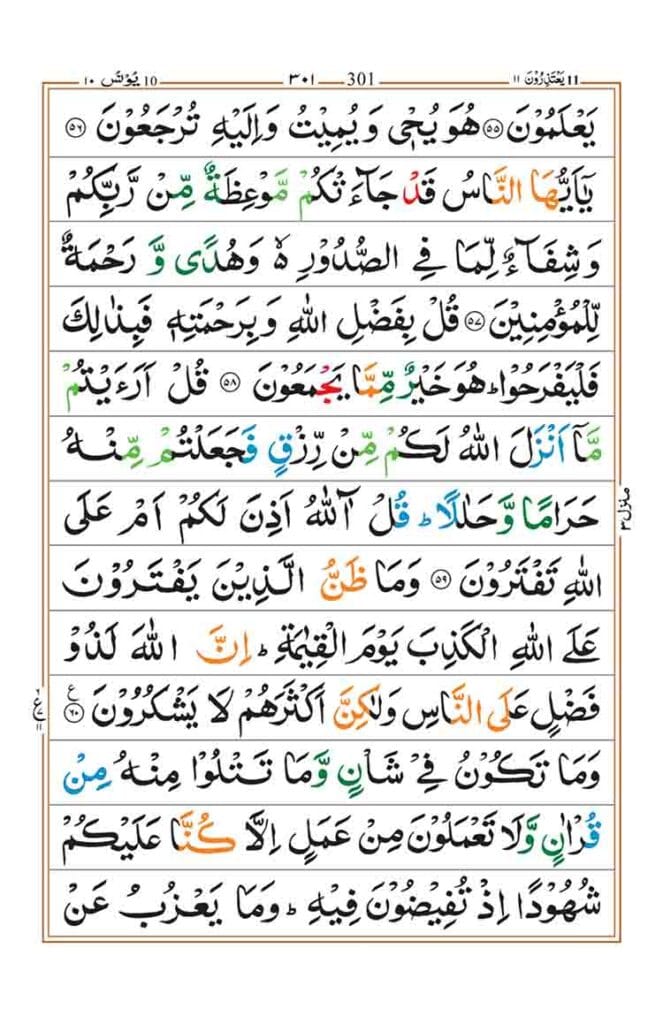 یَعْتَذِرُوْنَ ۱۱ 11 301 ۳۰۱ 10 یُوْنُس ۱۰
یَعْلَمُوْنَ ﴿۵۵﴾ هُوَ یُحْیٖ وَ یُمِیْتُ وَ اِلَیْهِ تُرْجَعُوْنَ ﴿۵۶﴾
یٰۤاَیُّهَا النَّاسُ قَدْ جَآءَتْكُمْ مَّوْعِظَةٌ مِّنْ رَّبِّكُمْ
وَ شِفَآءٌ لِّمَا فِی الصُّدُوْرِ ۙ۬ وَ هُدًی وَّ رَحْمَةٌ
لِّلْمُؤْمِنِیْنَ ﴿۵۷﴾ قُلْ بِفَضْلِ اللّٰهِ وَ بِرَحْمَتِهٖ فَبِذٰلِكَ
فَلْیَفْرَحُوْا ؕ هُوَ خَیْرٌ مِّمَّا یَجْمَعُوْنَ ﴿۵۸﴾ قُلْ اَرَءَیْتُمْ
مَّاۤ اَنْزَلَ اللّٰهُ لَكُمْ مِّنْ رِّزْقٍ فَجَعَلْتُمْ مِّنْهُ
حَرَامًا وَّ حَلٰلًا ؕ قُلْ آٰللّٰهُ اَذِنَ لَكُمْ اَمْ عَلَی
اللّٰهِ تَفْتَرُوْنَ ﴿۵۹﴾ وَ مَا ظَنُّ الَّذِیْنَ یَفْتَرُوْنَ
عَلَی اللّٰهِ الْكَذِبَ یَوْمَ الْقِیٰمَةِ ؕ اِنَّ اللّٰهَ لَذُوْ
فَضْلٍ عَلَی النَّاسِ وَ لٰكِنَّ اَكْثَرَهُمْ لَا یَشْكُرُوْنَ ﴿۶۰﴾ ع
وَ مَا تَكُوْنُ فِیْ شَاْنٍ وَّ مَا تَتْلُوْا مِنْهُ مِنْ
قُرْاٰنٍ وَّ لَا تَعْمَلُوْنَ مِنْ عَمَلٍ اِلَّا كُنَّا عَلَیْكُمْ
شُهُوْدًا اِذْ تُفِیْضُوْنَ فِیْهِ ؕ وَ مَا یَعْزُبُ عَنْ
منزل ۳